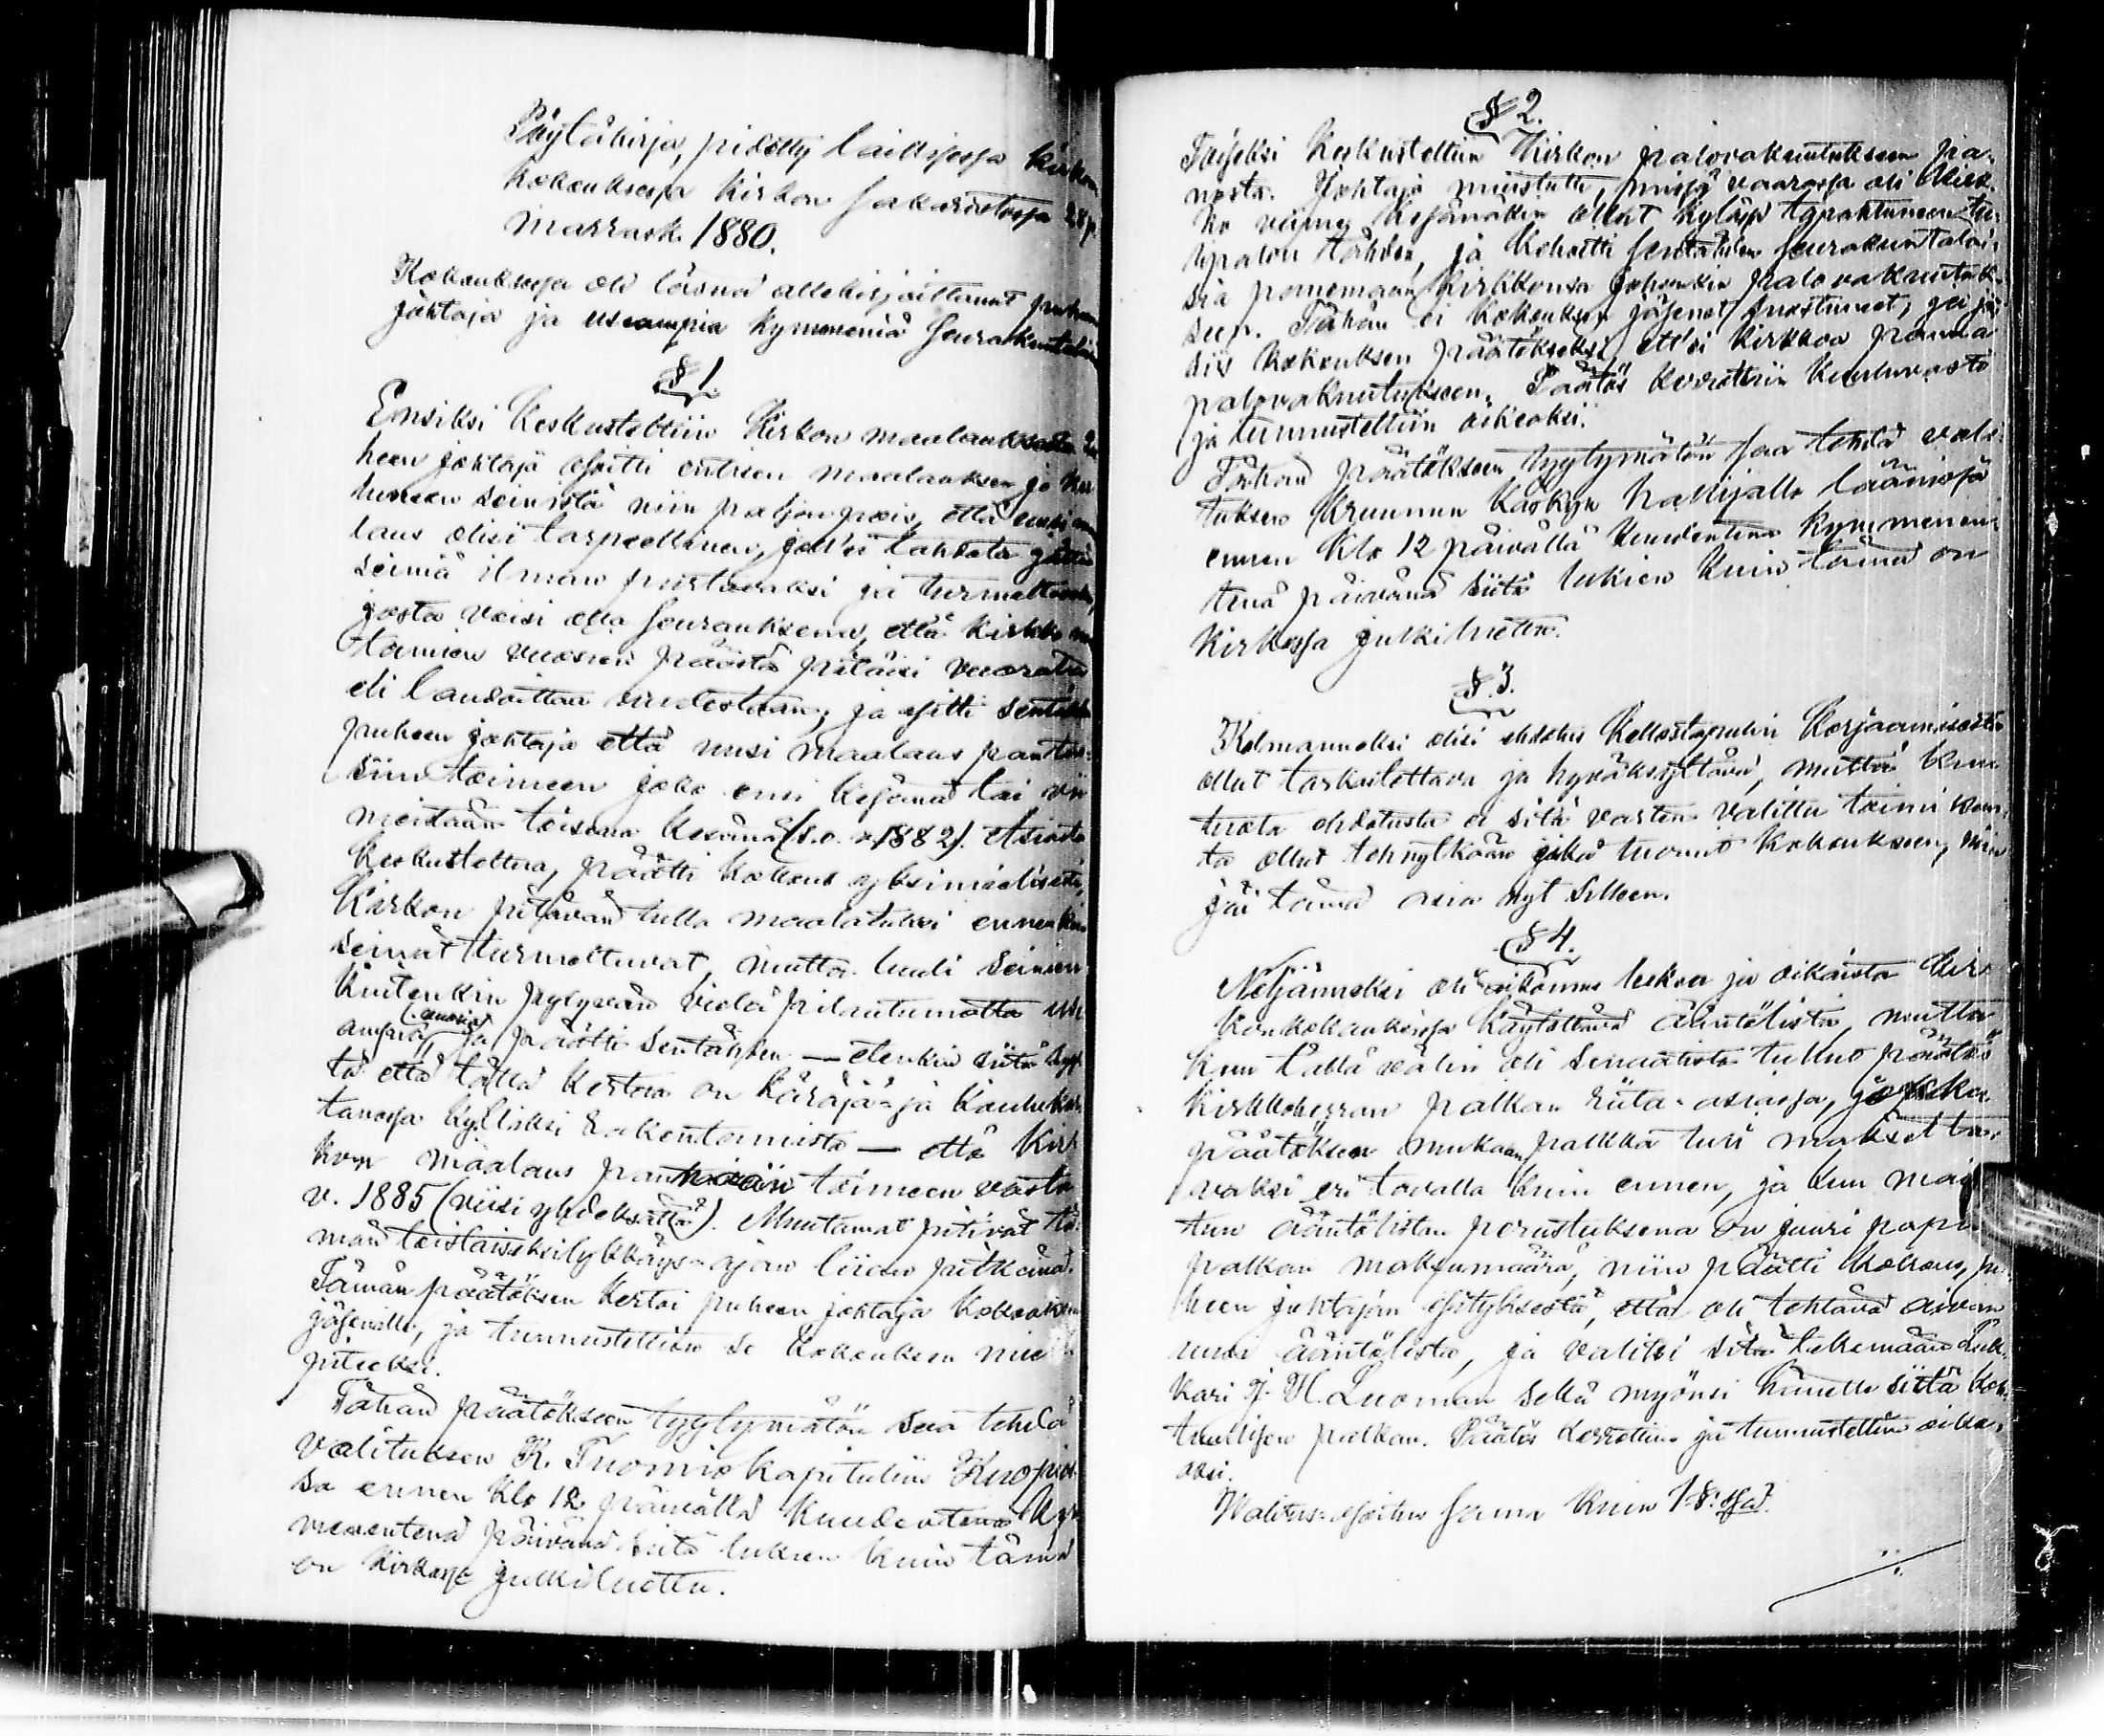 Pöytäkirja, pidetty laillisessa kirkon
kokouksessa Kirkon sakaristossa 28 p.
Marrask. 1880.
Kokouksessa oli läsnä allekirjoittanut puheen
johtaja ja useampia kymmeniä seurakuntalaisia
§ 1.
Ensiksi keskusteltiin Kirkon maalauksesta. Pu
heen johtaja esitti entisen maalauksen jo
tuneen seinistä niin paljon pois, että uusi maa
laus olisi tarpeellinen, joll'ei tahdota jättää
seiniä ilman puistavaksi ja turmeltavaksi,
josta voisi olla seurauksena, että kirkko muu
tamien vuosien päästä pitäisi vuorata
eli laudoittaa uudestaan; ja esitti sentähden
puheen johtaja että uusi maalaus pantai-
siin toimeen joko ensi kesänä tai viimeistään
meistään toisena kesänä (s.o. v. 1882). Asiasta
keskusteltua, päätti kokous yksimielisesti,
Kirkon pitävän tulla maalatuksi ennenkuin
seinät turmeltuvat, mutta luuli seinien
kuitenkin pysyvän vielä pilautumatta
(vuosia) ja päätti sentähden — etenkin siitä syys
tä että tällä kertaa on käräjä- ja koulukar
tanossa kylliksi rakentamista — että Kir
kon maalaus pantaisiin toimeen vasta
v. 1885 (viisi yhdeksättä). Muutamat pitivät tä-
män toistaiseksi lykkäys-ajan liian pitkänä.
Tämän päätöksen kertoi puheen johtaja kokouksen
jäsenille, ja tunnustettiin se kokouksen mieli
piteeksi.
Tähän päätökseen tyytymätön saa tehdä
valituksen K. Tuomiokapituliin Kuopios
sa ennen klo 12 päivällä kuudentena kym
menentenä päivänä siitä lukien kuin tämä
on Kirkossa julkiluettu.
§ 2.
Toiseksi keskusteltiin Kirkon palovakuutukseen pa-
nosta. Johtaja muistutti, missä vaarassa oli Kirk-
ko viime kesänäkin ollut kylässä tapahtuneen tu-
lipalon tähden, ja kehoitti sentähden seurakuntalai-
sia panemaan Kirkkonsa johonkin palovakuutuk-
seen. Tähän ei kokouksen jäsenet suostuneet, ja jäi
siis kokouksen päätökseksi, ett'ei kirkkoa panna
palovakuutukseen. Päätös kerrottiin kuuluvasti
ja tunnustettiin oikeaksi.
Tähän päätökseen tyytymätön saa tehdä vali-
tuksen Kruunun Käskyn haltijalle läänissä
ennen klo 12 päivällä kuudentena kymmenen-
tenä päivänä siitä lukien kuin tämä on
Kirkossa julkiluettu.
§ 3.
Kolmanneksi olisi ehdotus Kellotapulin korjaamisesta
ollut tarkastettava ja hyväksyttävä, mutta kun
tuota ehdotusta ei sitä varten valittu toimikun-
ta ollut tehnytkään eikä tuonut kokoukseen, niin
jäi tämä asia nyt silleen.
§ 4.
Neljänneksi oli aikomus lukea ja oikaista kir-
konkokouksissa käytettävä ääntölista, mutta
kun tällä välin oli Senaatista tullut päätös
Kirkkoherran palkan riita-asiassa, jonka
päätöksen mukaan palkka tuli maksetta-
vaksi eri tavalla kuin ennen, ja kun mai
tun ääntölistan perustuksena on juuri papin
palkan maksumäärä, niin päätti kokous, pu-
heen johtajan esityksestä, että oli tehtävä aivan
uusi ääntölista, ja valitsi sitä tekemään Luk-
kari J. H. Luoman sekä myönsi hänelle siitä koh-
tuullisen palkan. Päätös kerrottiin ja tunnustettiin oike-
aksi.
Valitus-osoitus sama kuin 1 §:ssä.